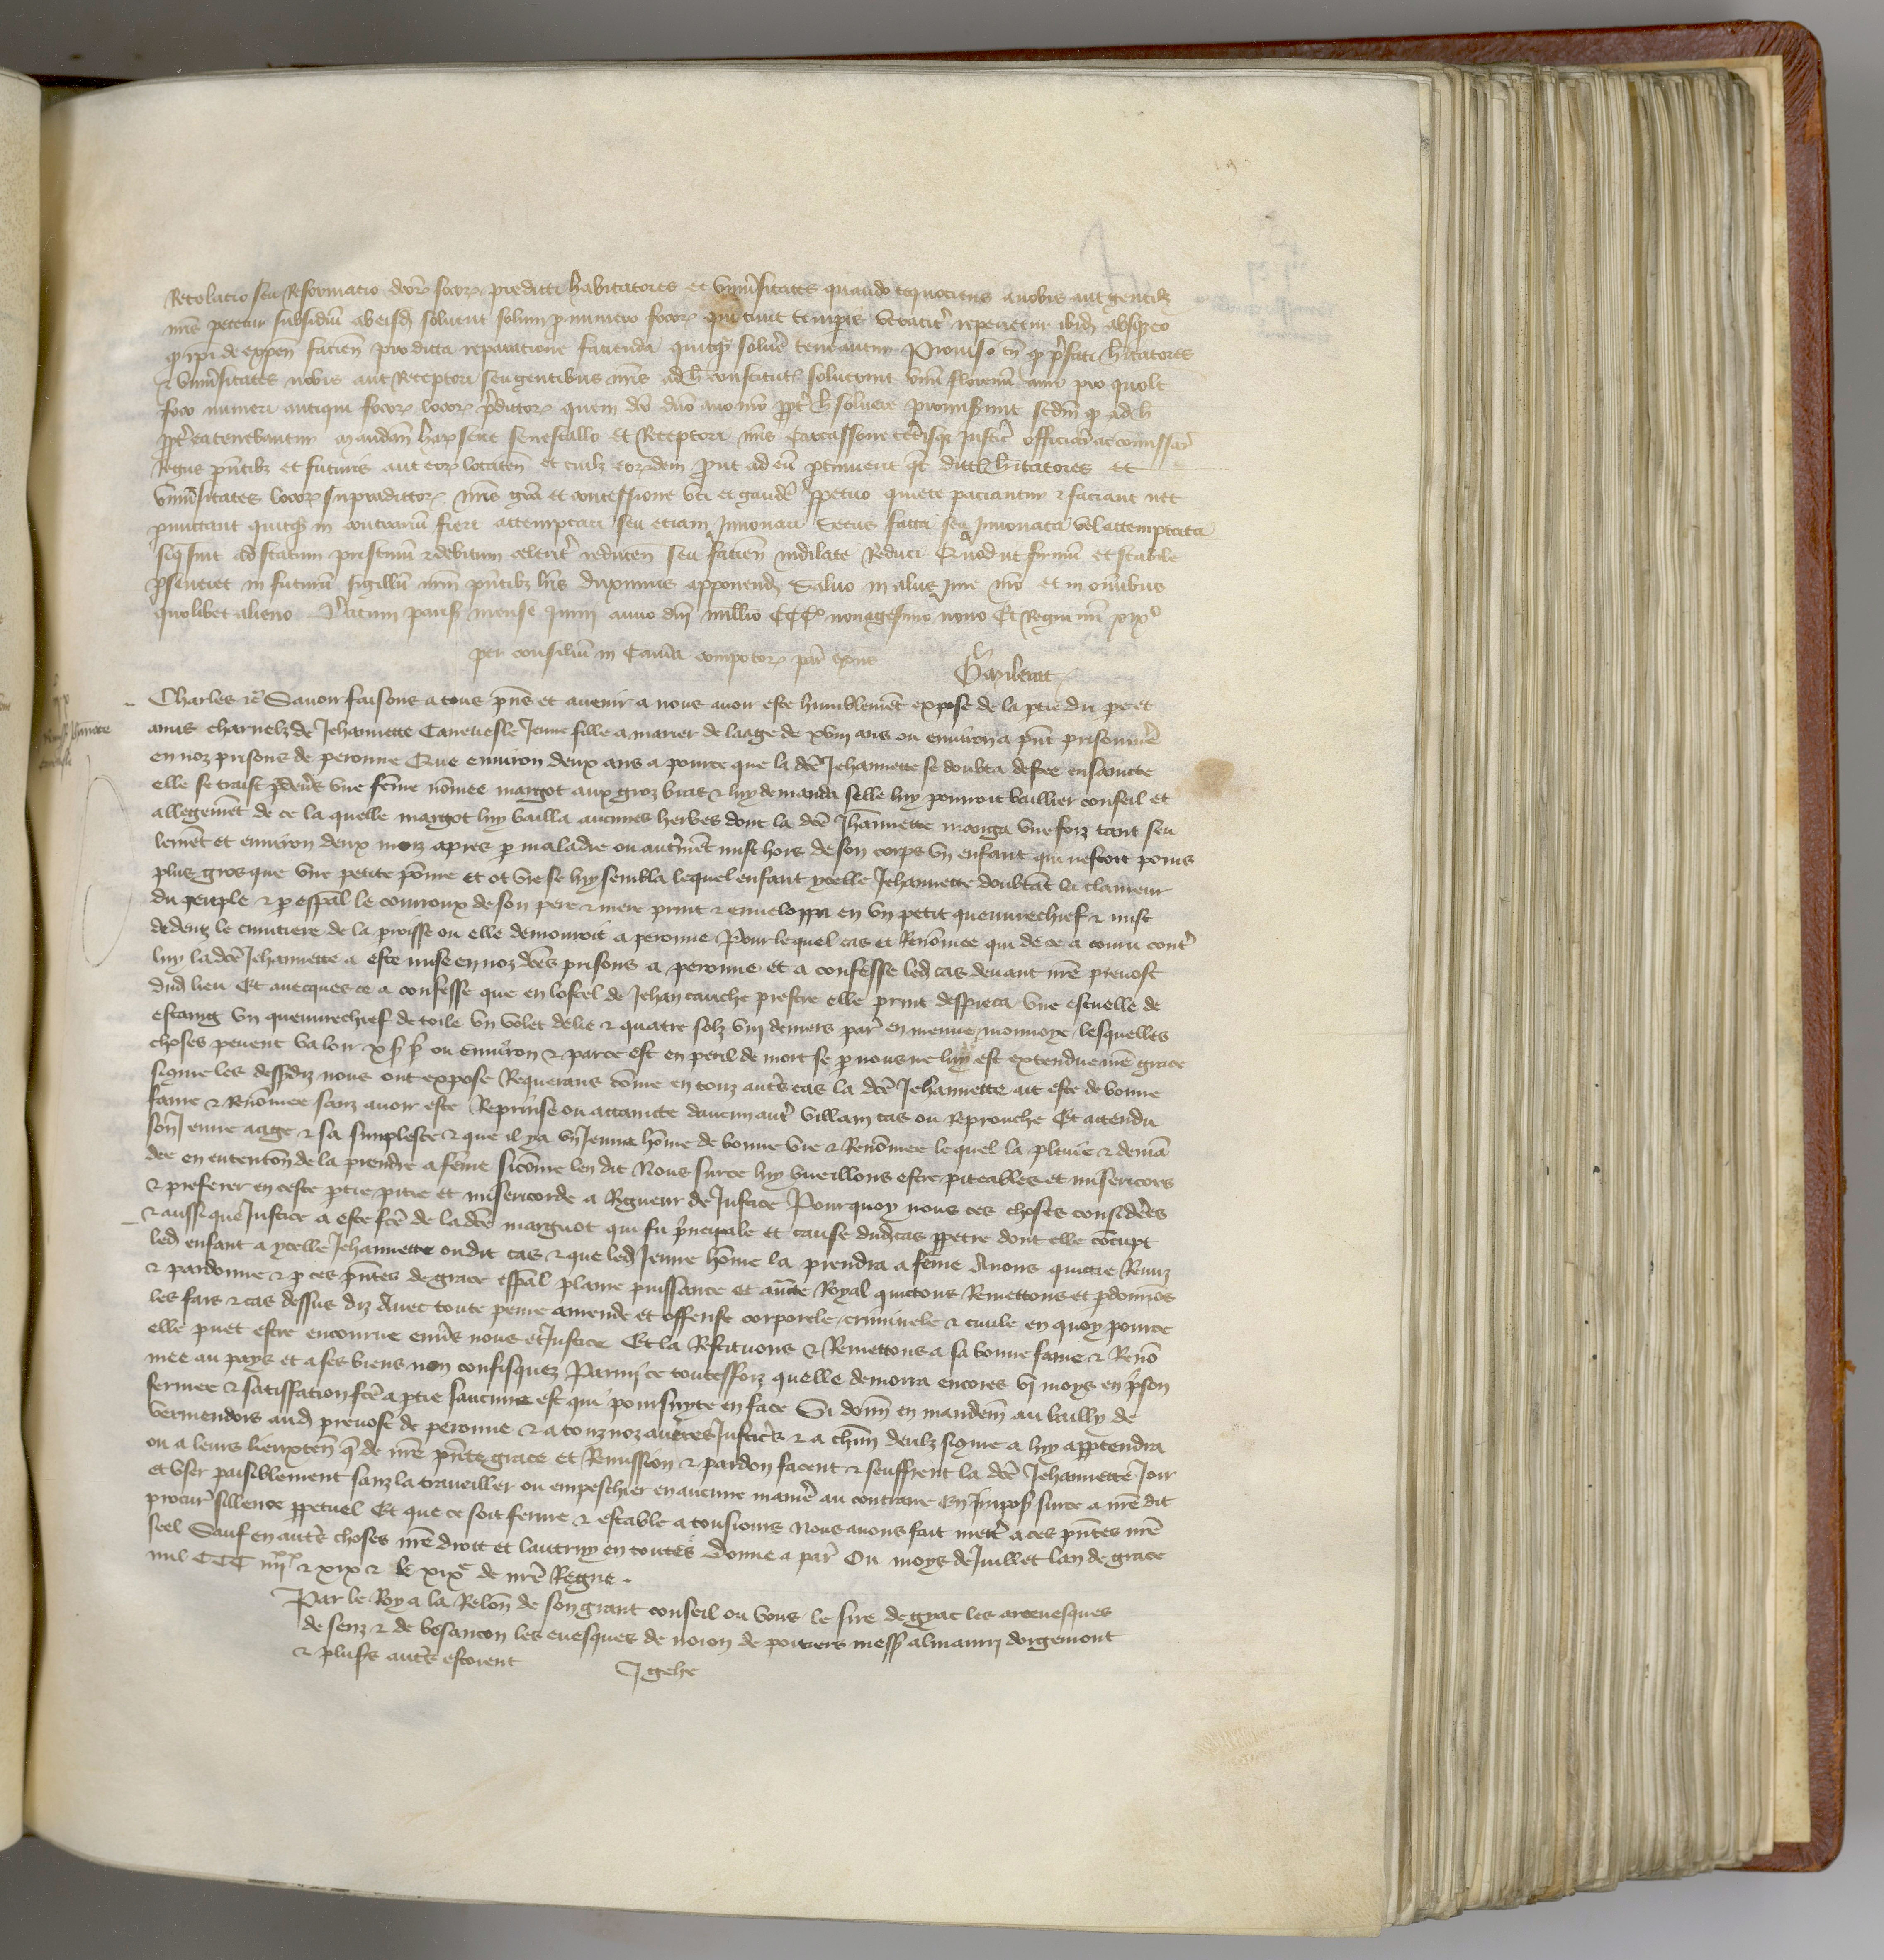 Revolatio seu Reformatio dcor focor predicti habitatores et vniusitates quando et quociens a nobis aut gentibz
nris petetur subsidiu ab eisd soluent solum p numero focor qui tunc temporis veracit repientur ibid absqz eo
q ipi de expen facien pro dicta reparatione facienda quicq soluere teneantur Proviso tn q pfati hitatores
et vniusitates nobis aut Receptori seu gentibus nris ad h constitut soluerint vnu florenu auri pro quolt
foco numeri antiqui focor locor pdictor quem soluere promiserunt scdm q ad h
teneantur mandam har serie senescallo et Receptori nris Carcassone ceterisqz Justic officiar ac comissar
Regiis pntibz et futuris aut eor locaten et cuilz eordem put ad eu ptinuerit qtz dictos hitatores et
vniusitates locor supradictor nris gra et concessione vti et gaudere ppetuo quiete paciantur et faciant nec
pmittant quicq in contrariu fieri attemptari seu etiam Innouari Secus facta seu Innouata vel attemptata
siq sint ad statum pristinu et debitum celerit reducen seu facien indilate Reduci Quod ut firmu et stabile
pseueret in futuru sigillu nrm pntibz lris duximus apponend Saluo in aliis Jure nro et in omibus
quolibet alieno Datum paris mense Junii anno dni millio CCCo nonagesimo nono Et Regni nri xixo
per consiliu in Camera compotor par exns
Charles etc Sauoir faisons a tous pns et auenir a nous auoir este humblemet expose de la ptie du pe et
amis charnelz de Jehannette Caneuesle Jeune fille a marier de laage de xviii ans ou enuiron a pnt prisonniere
en noz prisons de peronne Que enuiron deux ans a pource que la dce Jehannette se doubta destre ensaincte
elle se traist pdeuers vne feme nomee margot aux groz bras et luy demanda selle luy pourroit baillier conseil et
allegemet de ce la quelle margot luy bailla aucunes herbes dont la dce Jhannette manga vne foiz tant seu
lemet et enuiron deux moiz apres p maladie ou autrmet mist hors de son corps vn enfant qui nestoit points
plus gros que vne petite pomme et ot vie se luy sembla lequel enfant ycelle Jehannette doubtat la clameur
du peuple et p espal le courroux de son pere et mere print et enueloppa en vn petit queuurechief et mist
dedenz le cimitiere de la proisse ou elle demouroit a peronne Pour lequel cas et Renomee qui de ce a couru contr
luy ladce Jehannette a este mise en noz dces prisons a peronne et a confesse led cas deuant nre preuost
dud lieu Et auecques ce a confesse que en lostel de Jehan cauche prestre elle print despieca vne escuelle de
estaing vn queuurechief de toile vn volet delie et quatre solz viii deniers par en menue monnoye lesquelles
choses peuent valoir x s p ou enuiron et parce est en peril de mort se p nous ne luy est extendue nre grace
sique les dessdiz nous ont expose Requerans come en touz autrs cas la dce Jehannette ait este de bonne
fame et Renomee sanz auoir este Reprinse ou attainte daucun autr villain cas ou reprouche Et attendu
son Jeune aage et sa simplesce et que il ya vn Jeune home de bonne vie et Renomee lequel la pleuie et dema
dee en entenciton de la prendre a feme sicome len dit Nous surce luy vueillons estre piteables et misericors
et preferer en ceste ptie pitie et misericorde a Rigueur de Justice Pourquoy nous ces choses considerees
et aussi que Justice a este fce de ladce marguot qui fu pncipale et cause dudcas ppetre dont elle concupt
led enfant a ycelle Jehannette oudit cas et que led Jeune home la prendra a feme Auons quictie Remiz
et pardonne et p ces pntes de grace espal plaine puissance et aucte Royal quictons Remettons et pdonnos
les fais et cas dessus diz Auec toute peine amende et offense corporele criminele et ciuile en quoy pource
elle puet estre encourue enuers nous et Justice Et la Restituons et Remettons a sa bonne fame et Reno
mee au pays et a ses biens non confisquez Parmi ce toutesfoiz quelle demorra encores vn moys en prison
fermee et satisfation fce a ptie saucune est qui poursuyte en face Si donn en mandem au bailly de
vermendois aud preuost de peronne et a touz noz autres Justicrs et a chun deulz sique a luy apptendra
ou a leurs lieuxten q de nre pnte grace et Remission et pardon facent et seuffrent la dce Jehannette Joir
et vser paisiblement sanz la trauaillier ou empeschier en aucune maniere au contraire En Impos surce a nre dit
procur sillence ppetuel Et que ce soit ferme et estable a tousiours Nous auons fait mettre a ces pntes nre
seel Sauf en autrs choses nre droit et lautruy en toutes Donne a par Ou moys de Juillet lan de grace
mil CCC iiiixx et xix et le xixe de nre Regne.
Par le Roy a la Relon de son grant conseil ou vous le sire de giac les arceuesques
de senz et de besancon les euesques de noion de poitiers mess almaurry dorgemont
et pluss autrs estoient J gehe